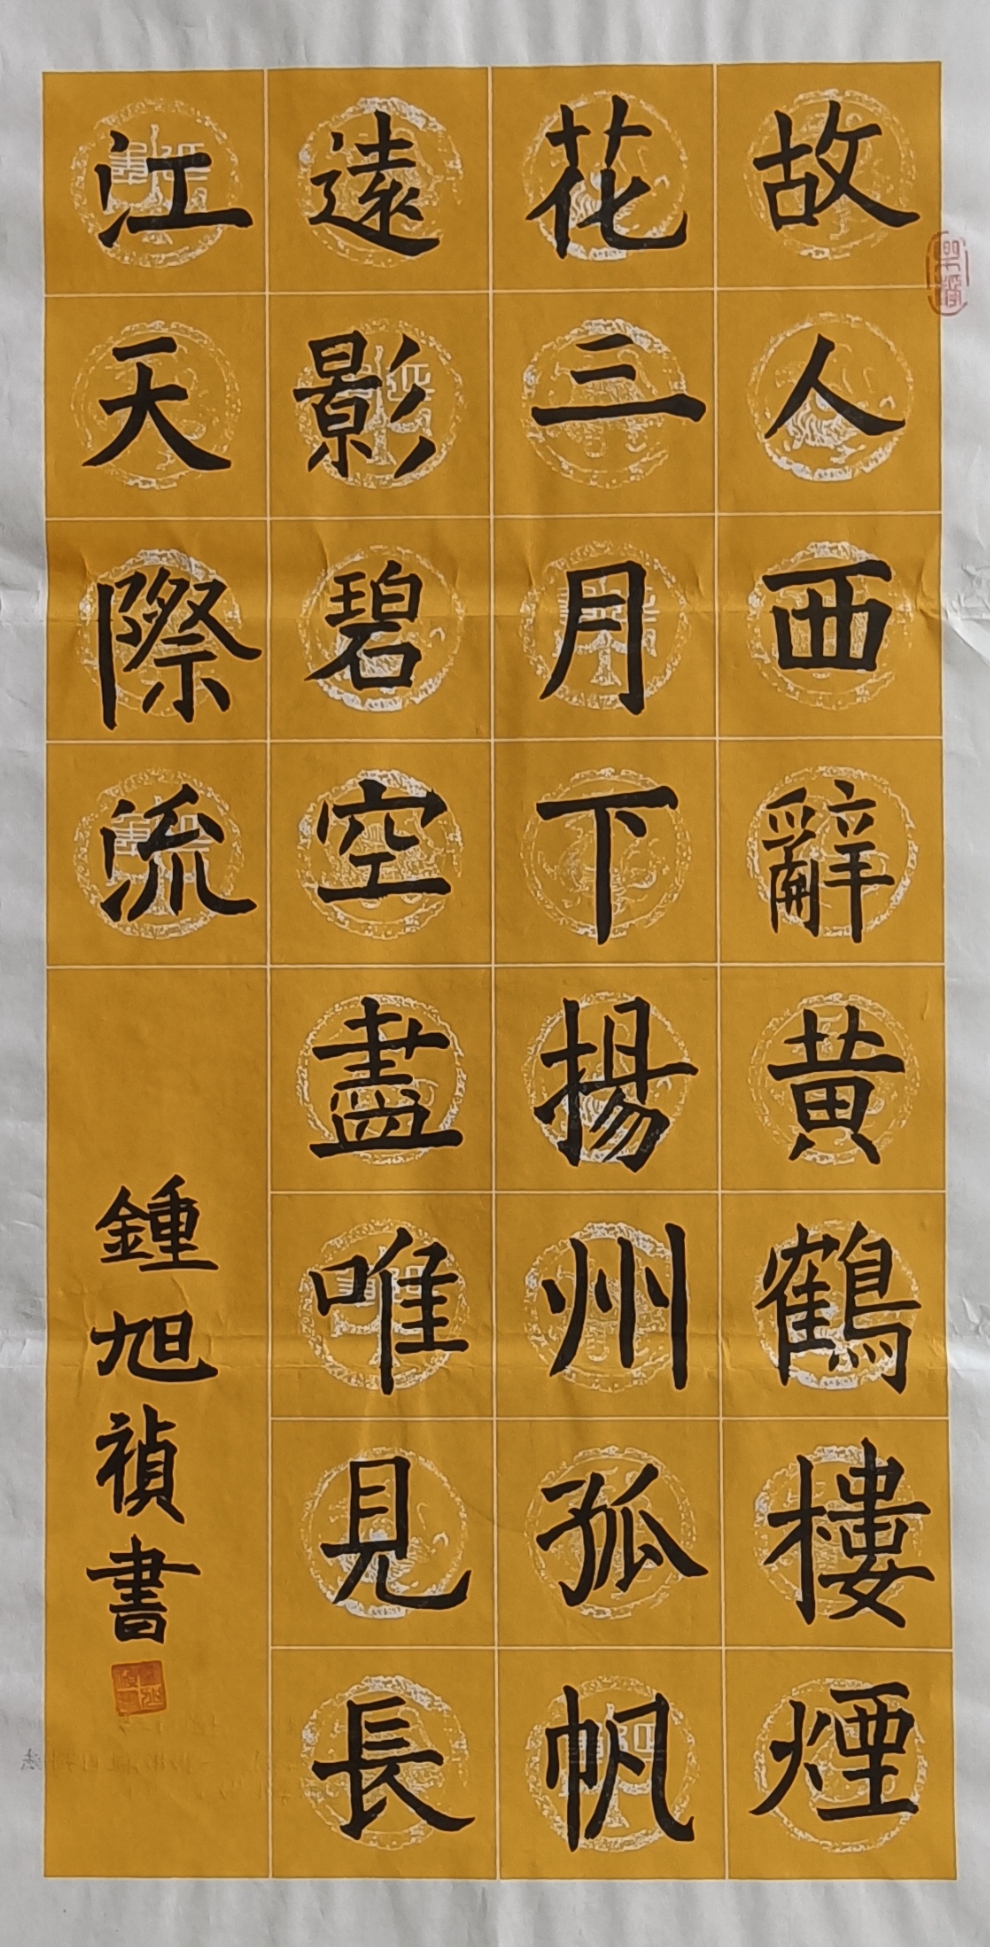 故人西辭黄鶴樓煙
花三月下揚州孤帆
遠影碧空盡唯見長
江天際流
鍾旭禎書